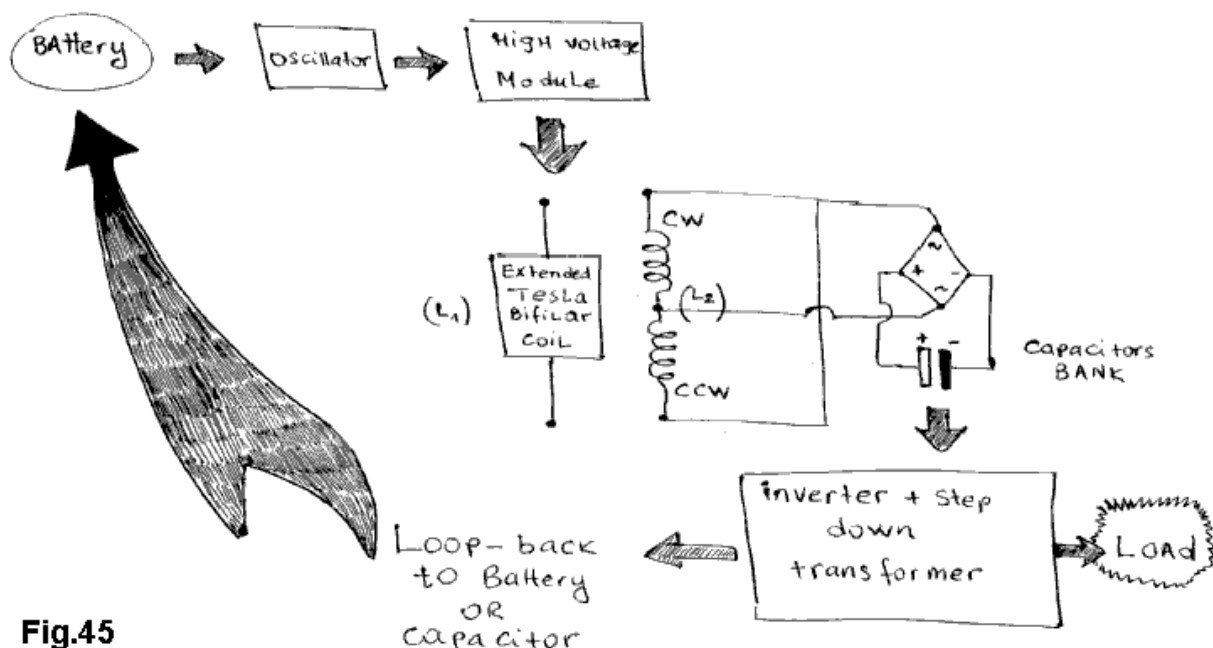 BAttery
Oscillator
HigH voltage
Module
CW
Extended
Tesla
Bifilar
coil
(L1)
(L2)
CCW
~
+
-
~
+ -
Capacitors
BANK
inverter + step
down
transformer
LOAd
Loop-back
to Battery
OR
Capacitor
Fig.45